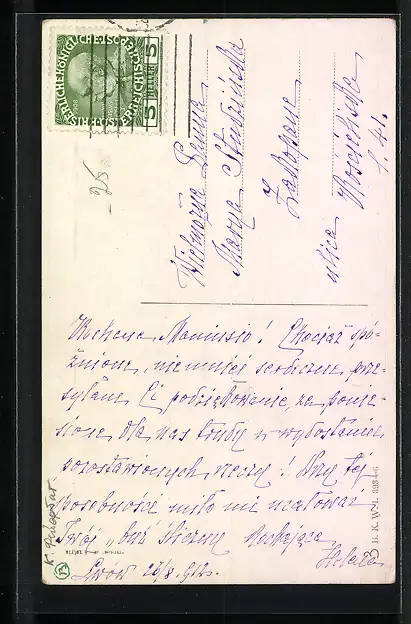 KAISERLICHE KÖNIGLICHE ÖSTERREICHISCHE POST
5 HELLER 5
25
Wielmożna Panna
Marya Studzińska
Zakopane
ulica Kościeliska
l. 41.
Kochana Maniusiu! Chociaż spó-
źnione, niemniej serdeczne, prze-
syłam Ci podziękowanie, za ponie-
sione dla nas trudy w wydostaniu
pozostawionych rzeczy! Przy tej
sposobności miło mi ucałować
Twój „buź" śliczny Kochająca
Helena
Lwów 28/8. 912.
B. K. W. I. 393-6